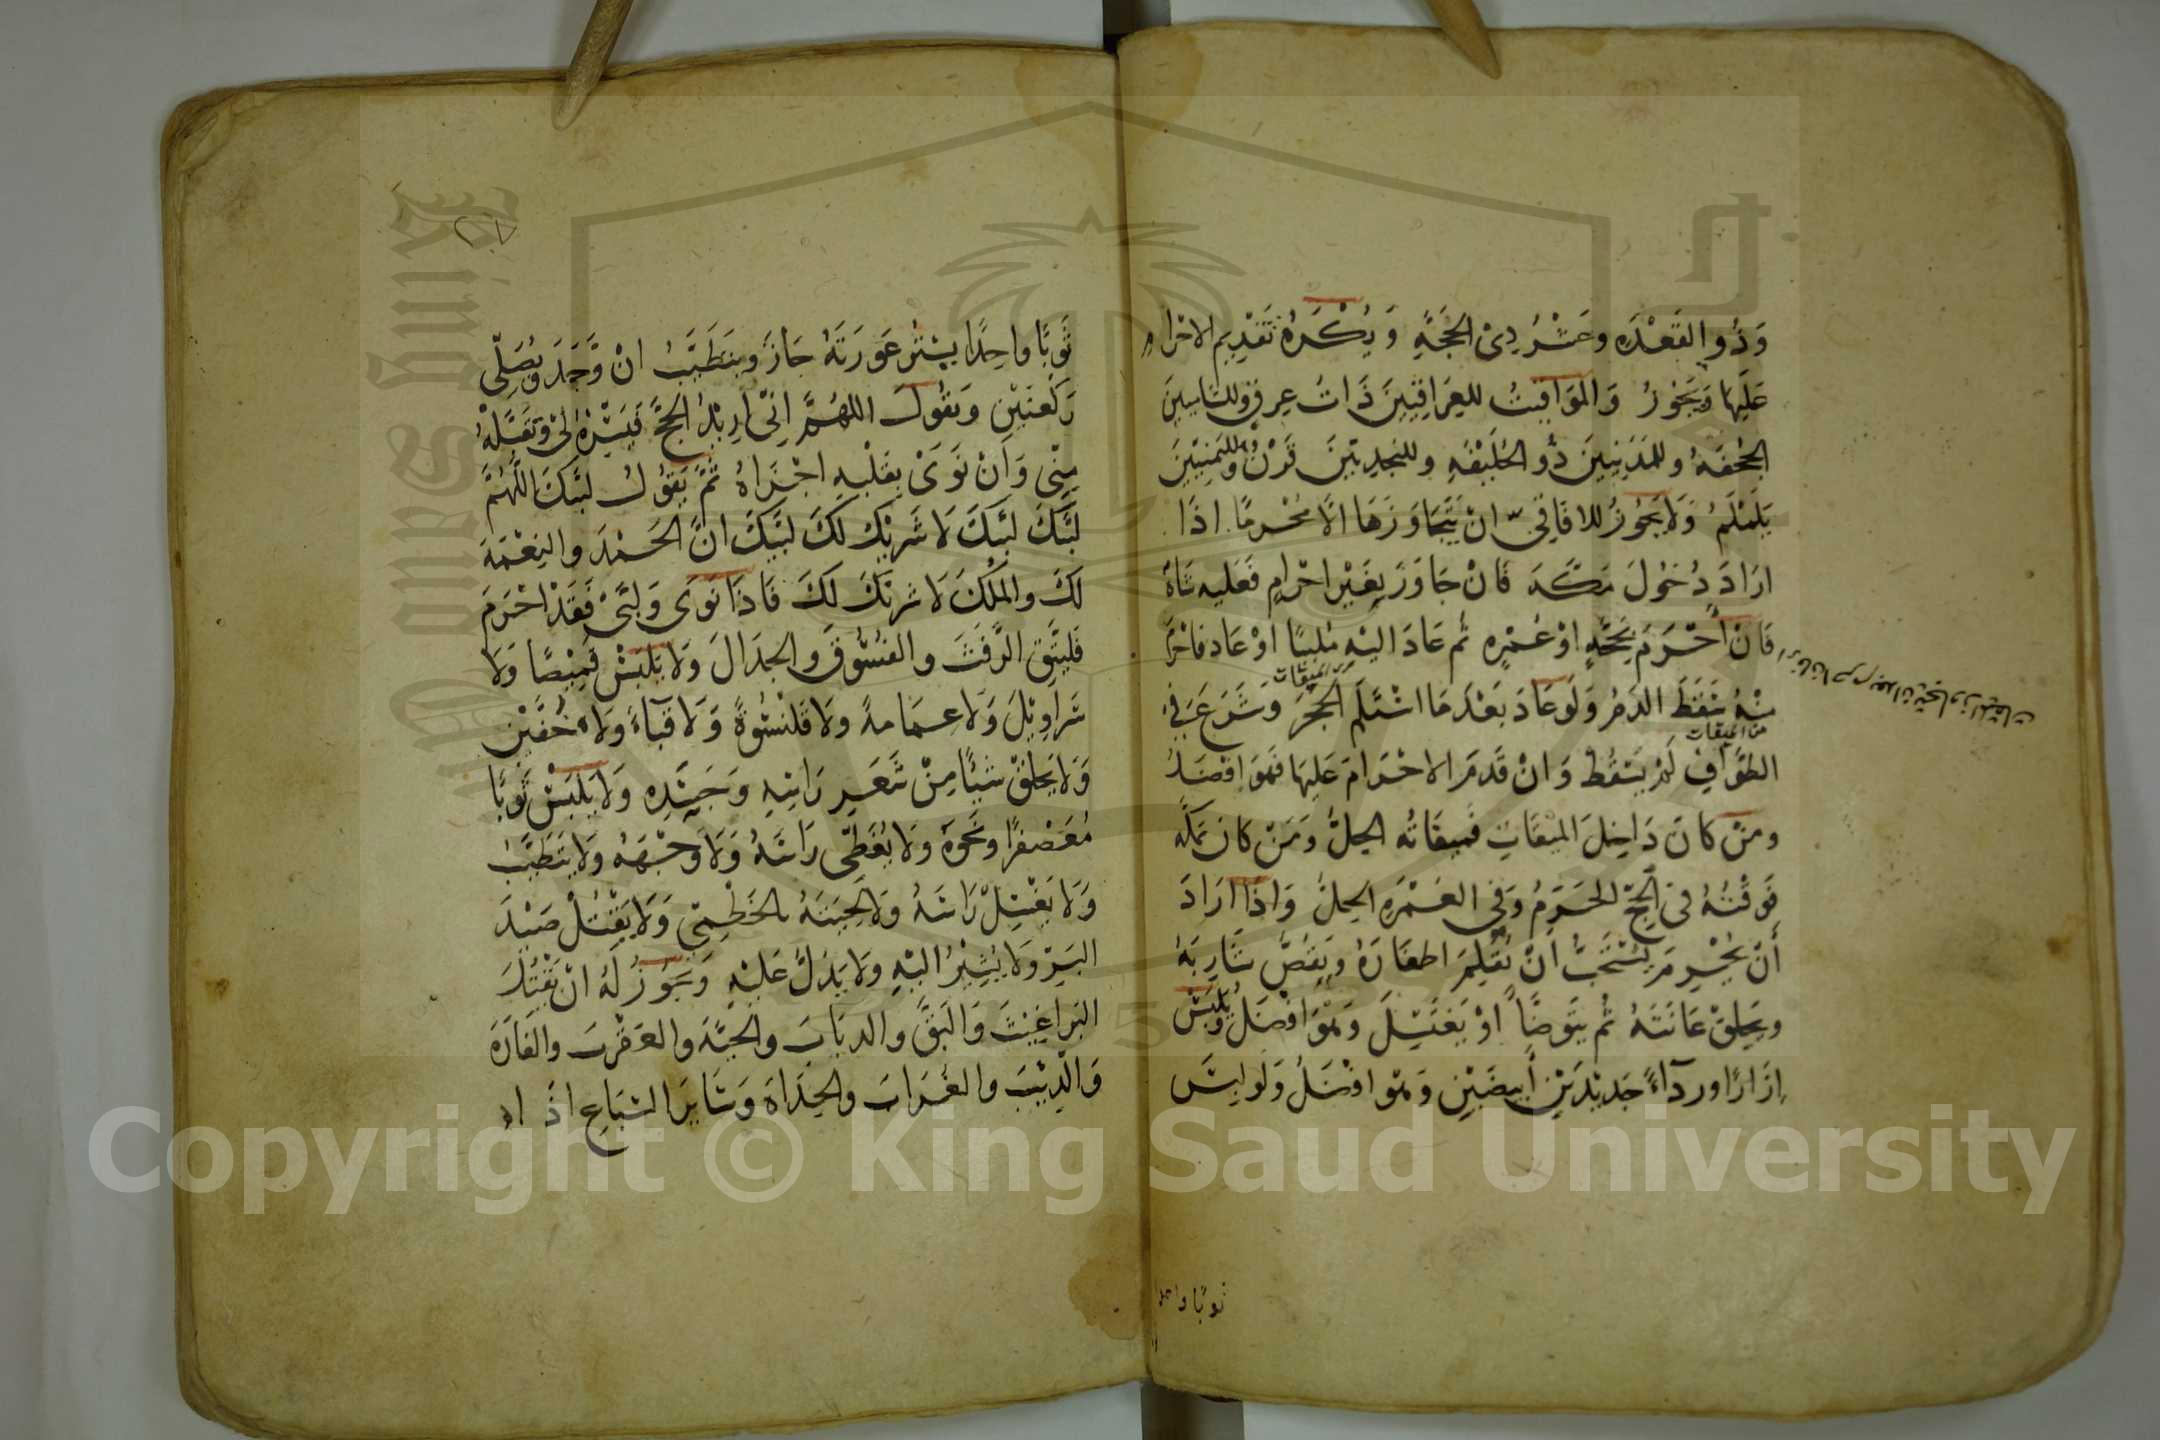 وَذُو القَعْدَهِ وعَشْرُ ذِى الحَجَّةِ وَيُكْرَهُ تَقْدِيم الاحْرام
عَلَيها وَيَجُوزُ وَالمَوَاقيتُ للعِرَاقِيينَ ذَاتُ عِرقٍ وللشاميينَ
الجُحْفَهُ وللمَدَنيينَ ذُو الحُلَيْفَهِ وللنجديينَ قَرْنٌ ولليَمَنِيّينَ
يَلَمْلَمُ وَلَا يَجُوزُ للافَاقِىّ انْ يَتَجَاوَزَهَا الّا مُحْرِمًا اذَا
ارَادَ دُخُولَ مَكّةَ فَانْ جَاوَزَ بِغَيْرِ احْرامٍ فَعَليه شَاةٌ
فَانْ أَحْرَمَ بِحَجَّهٍ اوْ عُمْرِهِ ثم عَادَ اليْهِ مُلبيًا اوْ عَادَ فاحْرَمَ
اى فان احرم بعد ان تجاوز الميقات
الى الميقات
مِنْهُ سَقَطَ الدَمُ وَلَو عَادَ بَعْدَ مَا اسْتَلَمَ الحَجَرَ وَشَرَعَ فِي
من الميقات
الطَوَافِ لَمْ يَسْقُطْ وَانْ قَدمَ الاحْرَامَ عَلَيهَا فَهوَ افْضَلُ
ومَنْ كَانَ دَاخِلَ المِيْقَاتِ فَمِيقَاتُه الحِلُّ وَمَنْ كَانَ بمَكَّه
فَوَقْتُهُ فى الحَجّ الحَرَمُ وَفِي العُمْرَهِ الحِلُّ وَاذَا ارَادَ
أنْ يُحْرِمَ يُسْتَحَبُّ انْ يُقَلِمَ اظفارَهُ وَيَقُصَّ شَارِبَهُ
ويَحلِقَ عَانَتَهُ ثم يَتَوضأ اوْ يَغْتَسِلَ وَهْوَ افْضَلُ وَيَلْبَسُ
اِزَارًا ورداءً جَديْدَيْنِ أَبيضَيْنِ وَهْو افْضَلُ وَلَو لبِسَ
ثوبًا واحدا
ثَوبًا واحِدًا يَسْتُر عَورَتَهُ جَازَ وَيتَطَيَّبُ انْ وَّجَدَ ويُصَلِّى
رَكْعَتيْنِ وَيَقُولُ اللهُمَّ اِنّى اريْدُ الحَجَّ فَيَسِّرْهُ لِىْ وَتَقَبَّلْهُ
مِنّى وَاَنْ نَوَىْ بِقَلْبِهِ اجْزَاهُ ثمَّ يَقوُلُ لبَّيكَ اللَّهُمَّ
لَبَّيكَ لبَّيكَ لَا شَريْكَ لَكَ لَبَّيكَ انَّ الحَمْدَ والنِعْمَةَ
لَكَ والمُلْكَ لَا شَريْكَ لَكَ فَاذَا نَوَى وَلَبَّىْ فَقَدْ احْرَمَ
فَليتَّقِ الرَّفَثَ والفُسُوقَ والجدَالَ وَلَا يَلْبَسْ قَمِيْصًا وَلَا
سَرَاوِيْلَ وَلَا عِمَامةً ولَا قَلَنْسُوَةً وَلَا قَبَاءً وَلَا خُفَّيْنِ
وَلَا يَحلِقْ شَيْئًا مِنْ شَعَرِ رَاسِهِ وَجَسَدِهِ وَلَا يَلْبَسْ ثَوبًا
مُعَصْفرًا ونَحْوَهُ وَلَا يُغَطِّى رَاسَهُ وَلَا وَجْهَهُ ولَا يَتَطَيَّبْ
وَلَا يَغْسِلْ رَاسَهُ وَلَا لِحيَتَهُ بالخَطْمِيّ وَلَا يَقْتُلْ صَيْدَ
البَرِّ وَلَا يُشِيْرُ اليْهِ وَلَا يَدُلُّ عَلَيْهِ وَيَجُوزُ لَهُ انْ يَقْتُلَ
البَراغِيْثَ وَالبَقَّ والذبَابَ والحَيَّةَ والعَقْرَبَ والفَارَةَ
وَالذِئْبَ والغُرَابَ والحِدَاةَ وَسَايِرَ السِبَاعِ اذَا